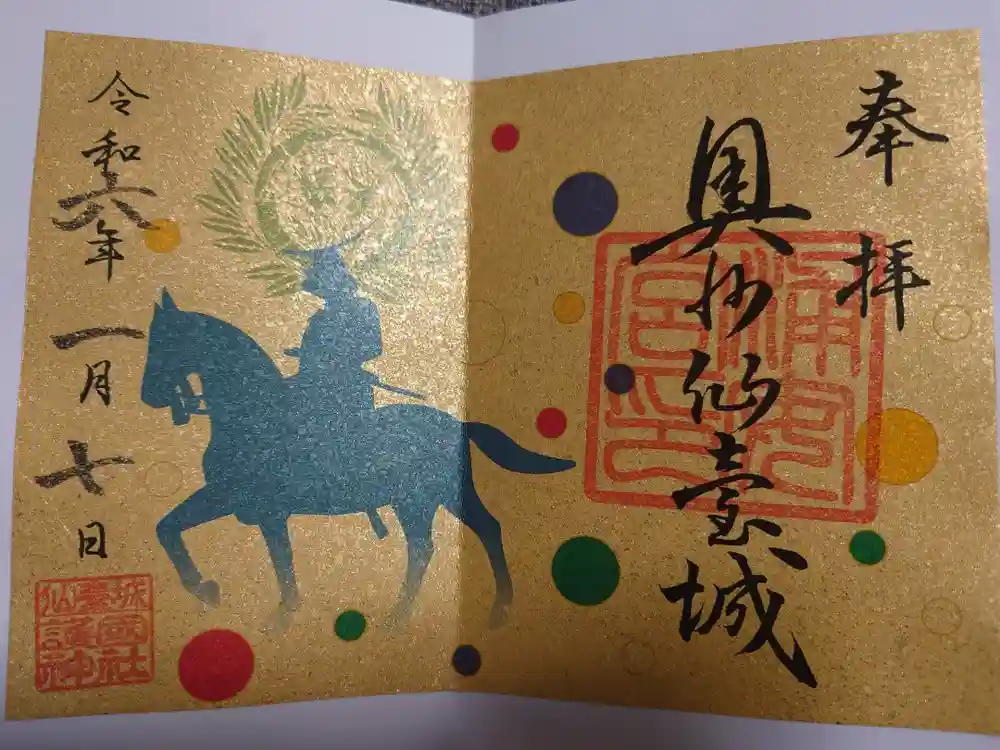 奉拝
奥州仙臺城
令和六年一月七日
仙臺城
護國
神社